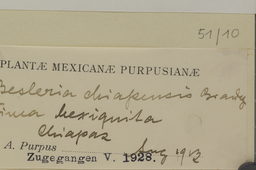 51/10
PLANTÆ MEXICANÆ PURPUSIANÆ
Besleria chiapensis Brandg
Finca Mexiquito
Chiapas
A. Purpus Aug 1913
Zugegangen V. 1928.